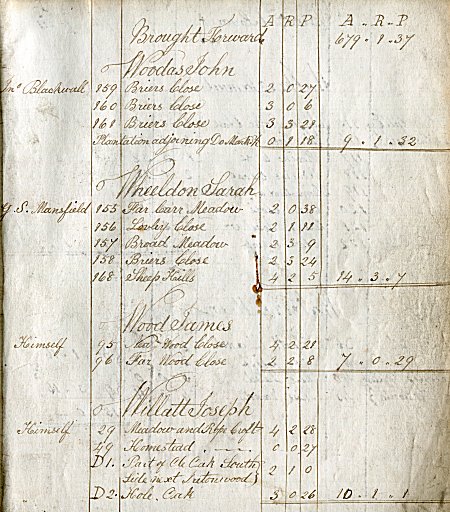 A R P A .. R .. P
Brought Forward 679 . 1 . 37
Woodas John
Jno Blackwall 159 Briers Close 2 0 27
160 Briers Close 3 0 6
161 Briers Close 3 3 21
Plantation adjoining Do 0 1 18 9 . 1 .. 32
Wheeldon Sarah
G. S. Mansfield 153 Far Carr Meadow 2 0 38
156 Close 2 1 11
157 Broad Meadow 2 3 9
158 Briers Close 2 3 24
168 Sheep Hills 4 2 5 14 . 3 . 7
Wood James
Himself 95 Wood Close 4 2 21
96 Far Wood Close 2 2 8 7 . 0 .. 29
Willatt Joseph
Himself 29 Meadow and Croft 4 2 28
49 Homestead 0 0 27
D 1. Part of Ole Oak South
Side next 2 1 0
D 2. Hole Oak 3 0 26 10 . 1 . 1